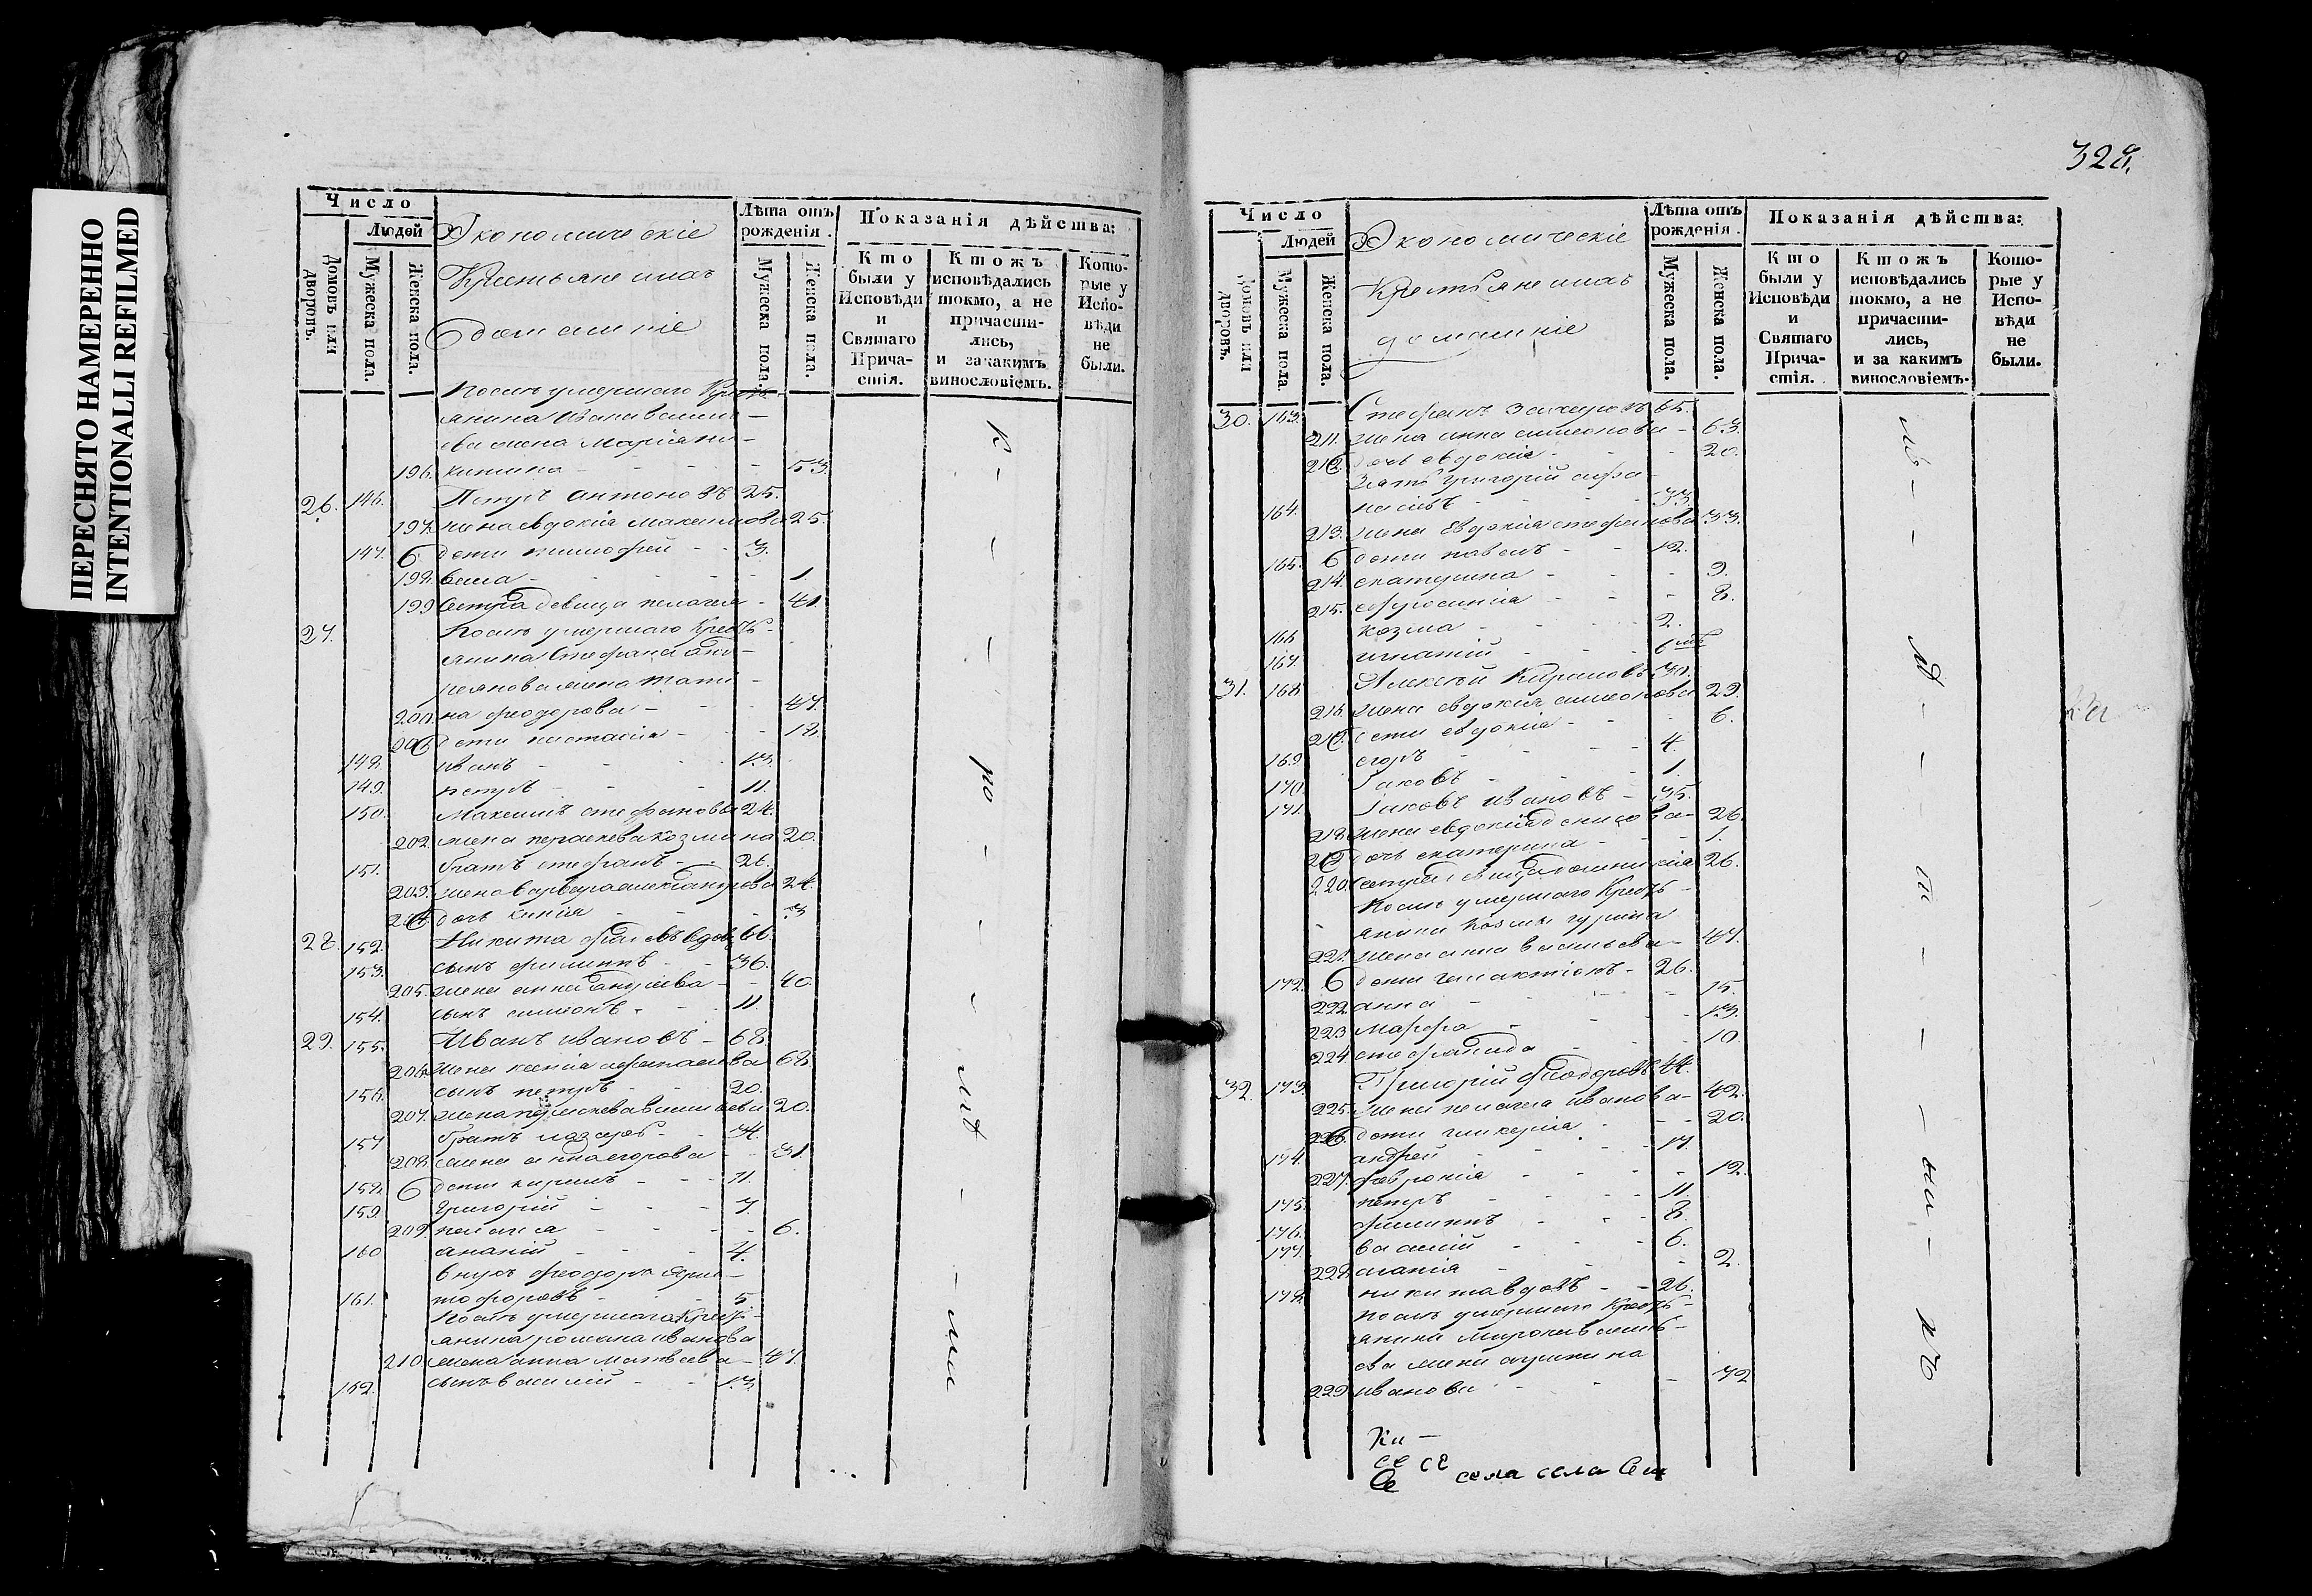 ПЕРЕСНЯТО НАМЕРЕННО
INTENTIONALLI REFILMED
328.
Число
Людей
Домовъ или дворовъ.
Мужеска пола.
Женска пола.
Экономическіе
Крестьяне ихъ
домашніе
Лѣта отъ рожденія.
Мужеска пола.
Женска пола.
Показанія дѣйства:
Кто были у Исповѣди и Святаго Причастія.
Ктожъ исповѣдались токмо, а не причастились, и закакимъ винословіемъ.
Которые у Исповѣди не были.
После умершаго Кресть-
янина Ивана Василь-
ева жена Маріа ни-
196. китина - 53.
26. 146. Петръ антоновъ 25.
197. жена евдокіа максимова 25.
147. дети тимофей - 3.
198. - 1
199 Сестра девица пелагея - 41.
27. После умершаго Кресть-
янина Стефана
жена тати-
200. на феодорова - 47.
201. дети настасіа - 18.
148. иванъ - 13.
149. петръ - 11.
150. Максимъ стефановъ 24.
202. жена параскева козмина 20.
151. братъ стефанъ - 26.
203. жена варвара александрова 24.
204. дочь ксенія - 3
28. 152. Никита вдовъ 66.
153. сынъ филиппъ - 36.
205. жена анна андреева - 40.
154. сынъ симеонъ - 11.
29. 155. Иванъ ивановъ - 68.
206. жена ксеніа афанасьева 68.
156. сынъ петръ - 20.
207. жена параскева васильева 20.
157 братъ назаръ - 34.
208. жена анна егорова - 31.
158. дети кириллъ - 11.
159. григорій - 7.
209. пелагея - 6.
160 ананій - 4.
внукъ феодоръ хрис-
161. тофоровъ - 5
После умершаго Кресть-
янина романа иванова
210. жена анна матвеева - 47.
162. сынъ василій - 13.
Число
Людей
Домовъ или дворовъ.
Мужеска пола.
Женска пола.
Экономическіе
Крестьяне ихъ
домашніе
Лѣта отъ рожденія.
Мужеска пола.
Женска пола.
Показанія дѣйства:
Кто были у Исповѣди и Святаго Причастія.
Ктожъ исповѣдались токмо, а не причастились, и за какимъ винословіемъ.
Которые у Исповѣди не были.
30. 163. Стефанъ захаровъ 65.
211. жена анна симеонова - 63.
212. дочь евдокіа - 20.
Зять григорій афа-
164. насьевъ - 33.
213. жена Евдокіа стефанова 33.
165. дети павелъ - 12.
214. екатерина - 9.
215. ефросиніа - 8.
166 козма - 2.
167. игнатій - 6
31. 168. Алексѣй Кириловъ 30.
216. жена евдокіа симеонова 29.
217. дети евдокіа - 6.
169. егоръ - 4.
170. Іаковъ - 1.
171. Іаковъ ивановъ - 35.
218. жена евдокіа денисова - 26.
219 дочь екатерина - 1.
220. сестра девица 26.
После умершаго Кресть-
янина козмы гурина
221. жена анна васильева - 47.
172. дети галактіонъ - 26.
222 анна - 15.
223 марфа - 13.
224 стефанида - 10.
32. 173. Григорій феодоровъ 44.
225. жена пелагея иванова - 42.
226. дети гликеріа - 20.
174. андрей - 17.
227. февроніа - 12.
175. петръ - 11.
176. филиппъ - 8.
177. василій - 6.
228. - 2.
178. никита вдовъ - 26.
после умершаго Кресть-
янина Мирона василь-
ева жена
229. иванова - 72
се се
Се села села Сел